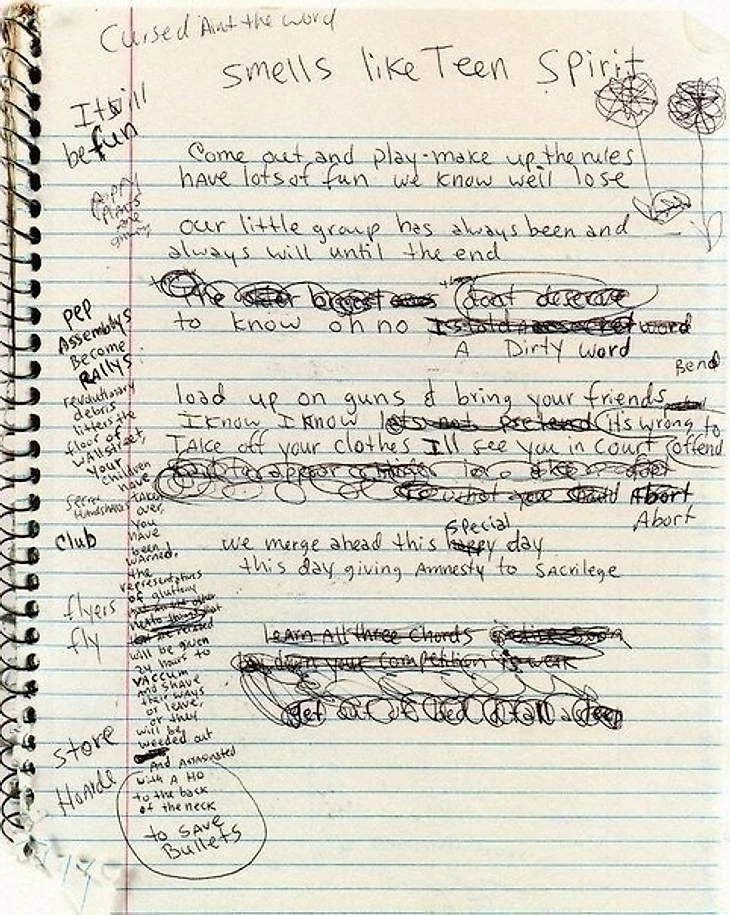 Cursed Aint the word
smells like Teen Spirit
It will
be fun
Come out and play-make up the rules
have lots of fun we know we'll lose
our little group has always been and
always will until the end
The biggest dont deserve
to know oh no word
A Dirty word
Bend
load up on guns & bring your friends
I know I know lets not pretend its wrong to
TAke off your clothes I'll see you in Court offend
what you should Abort
Abort
Special
we merge ahead this happy day
this day giving Amnesty to SAcrilege
learn All three Chords
your Competition is weak
get out of bed
pep
Assemblys
Become
RAllys
revolutionary
debris
litters the
floor of
wallstreet,
your
children
have
taken
over,
You
have
been
warned.
the
representatives
of gluttony
will be given
24 hours to
VACCUM
and shave
their ways
or leave,
or they
will be
weeded out
And Assasinated
with A Ho
to the back
of the neck
to SAve
Bullets
secret
Handshake
Club
flyers
fly
store
Hoarde